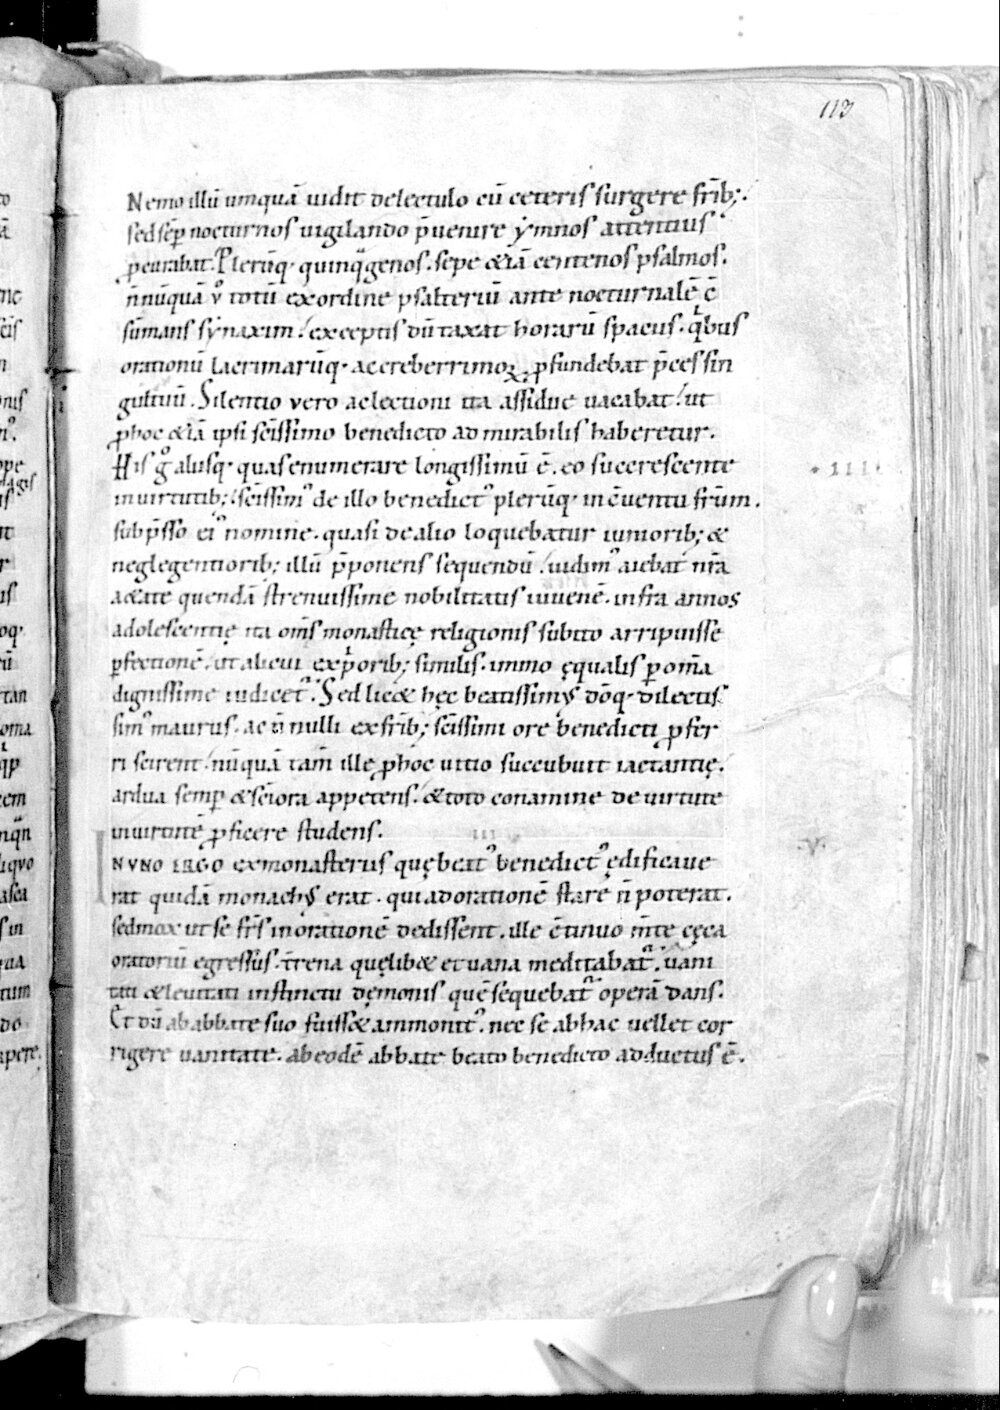 113
Nemo illū umquā uidit delectulo cū ceteris surgere frīb;.
sed sēp nocturnos uigilando p̄uenire ẏmnos attentius
ꝓcurabat. Plerūq· quinq̄genos. sepe &iā centenos psalmos.
n̄nūquā v̊ totū ex ordine psalteriū ante nocturnalē c̄
sūmans sẏnaxim. exceptis dūtaxat horarū spaciis. qͥbus
orationū lacrimarūq· ac creberrimoꝝ ꝓfundebat p̄ces sin
gultuū. Silentio vero ac lectioni ita assidue uacabat. ut
ꝓhoc &iā ipsi sc̄issimo benedicto admirabilis haberetur.
His g̊ aliisq· quas enumerare longissimū ē. eo succrescente
in uirtutib; sc̄issim᾿ de illo benedict᾿ plerūq· in c̄uentu fr̄um.
subp̄sso ei᾿ nomine. quasi de alio loquebatur iuniorib; &
neglegentiorib; illū p̄ponens sequendū. uidim᾿ aiebat nr̄a
a&ate quendā strenuissime nobilitatis iuuenē. infra annos
adolescentię ita om̄s monasticę religionis subito arripuisse
ꝑfectionē. ut alicui ex pͥorib; similis. immo ęqualis ꝑ om̄a
dignissime iudicet᾿. Sed lic& hęc beatissimꝰ dōq· dilectis
sim᾿ maurus. ac n̄ nulli ex frīb; sc̄issimi ore benedicti ꝓfer
ri scirent. nūquā tam̄ ille ꝓhoc uitio succubuit iactantię.
ardua semꝑ & sc̄iora appetens. & toto conamine de uirtute
in uirtutē ꝓficere studens.
IN VNO IRGO ex monasteriis quę beat᾿ benedict᾿ ędificaue
rat quidā monachꝰ erat. qui ad orationē stare n̄ poterat.
sed mox ut se frs̄ in orationē dedissent. ille c̄tinuo m̄te cęca
oratoriū egressus. t̄rena quęlib& et uana meditabat᾿. uani
tati & leuitati instinctu dęmonis quē sequebat᾿ operā dans.
Et dū ab abbate suo fuiss& ammonit᾿. nec se ab hac uellet cor
rigere uanitate. ab eodē abbate beato benedicto adductus ē.